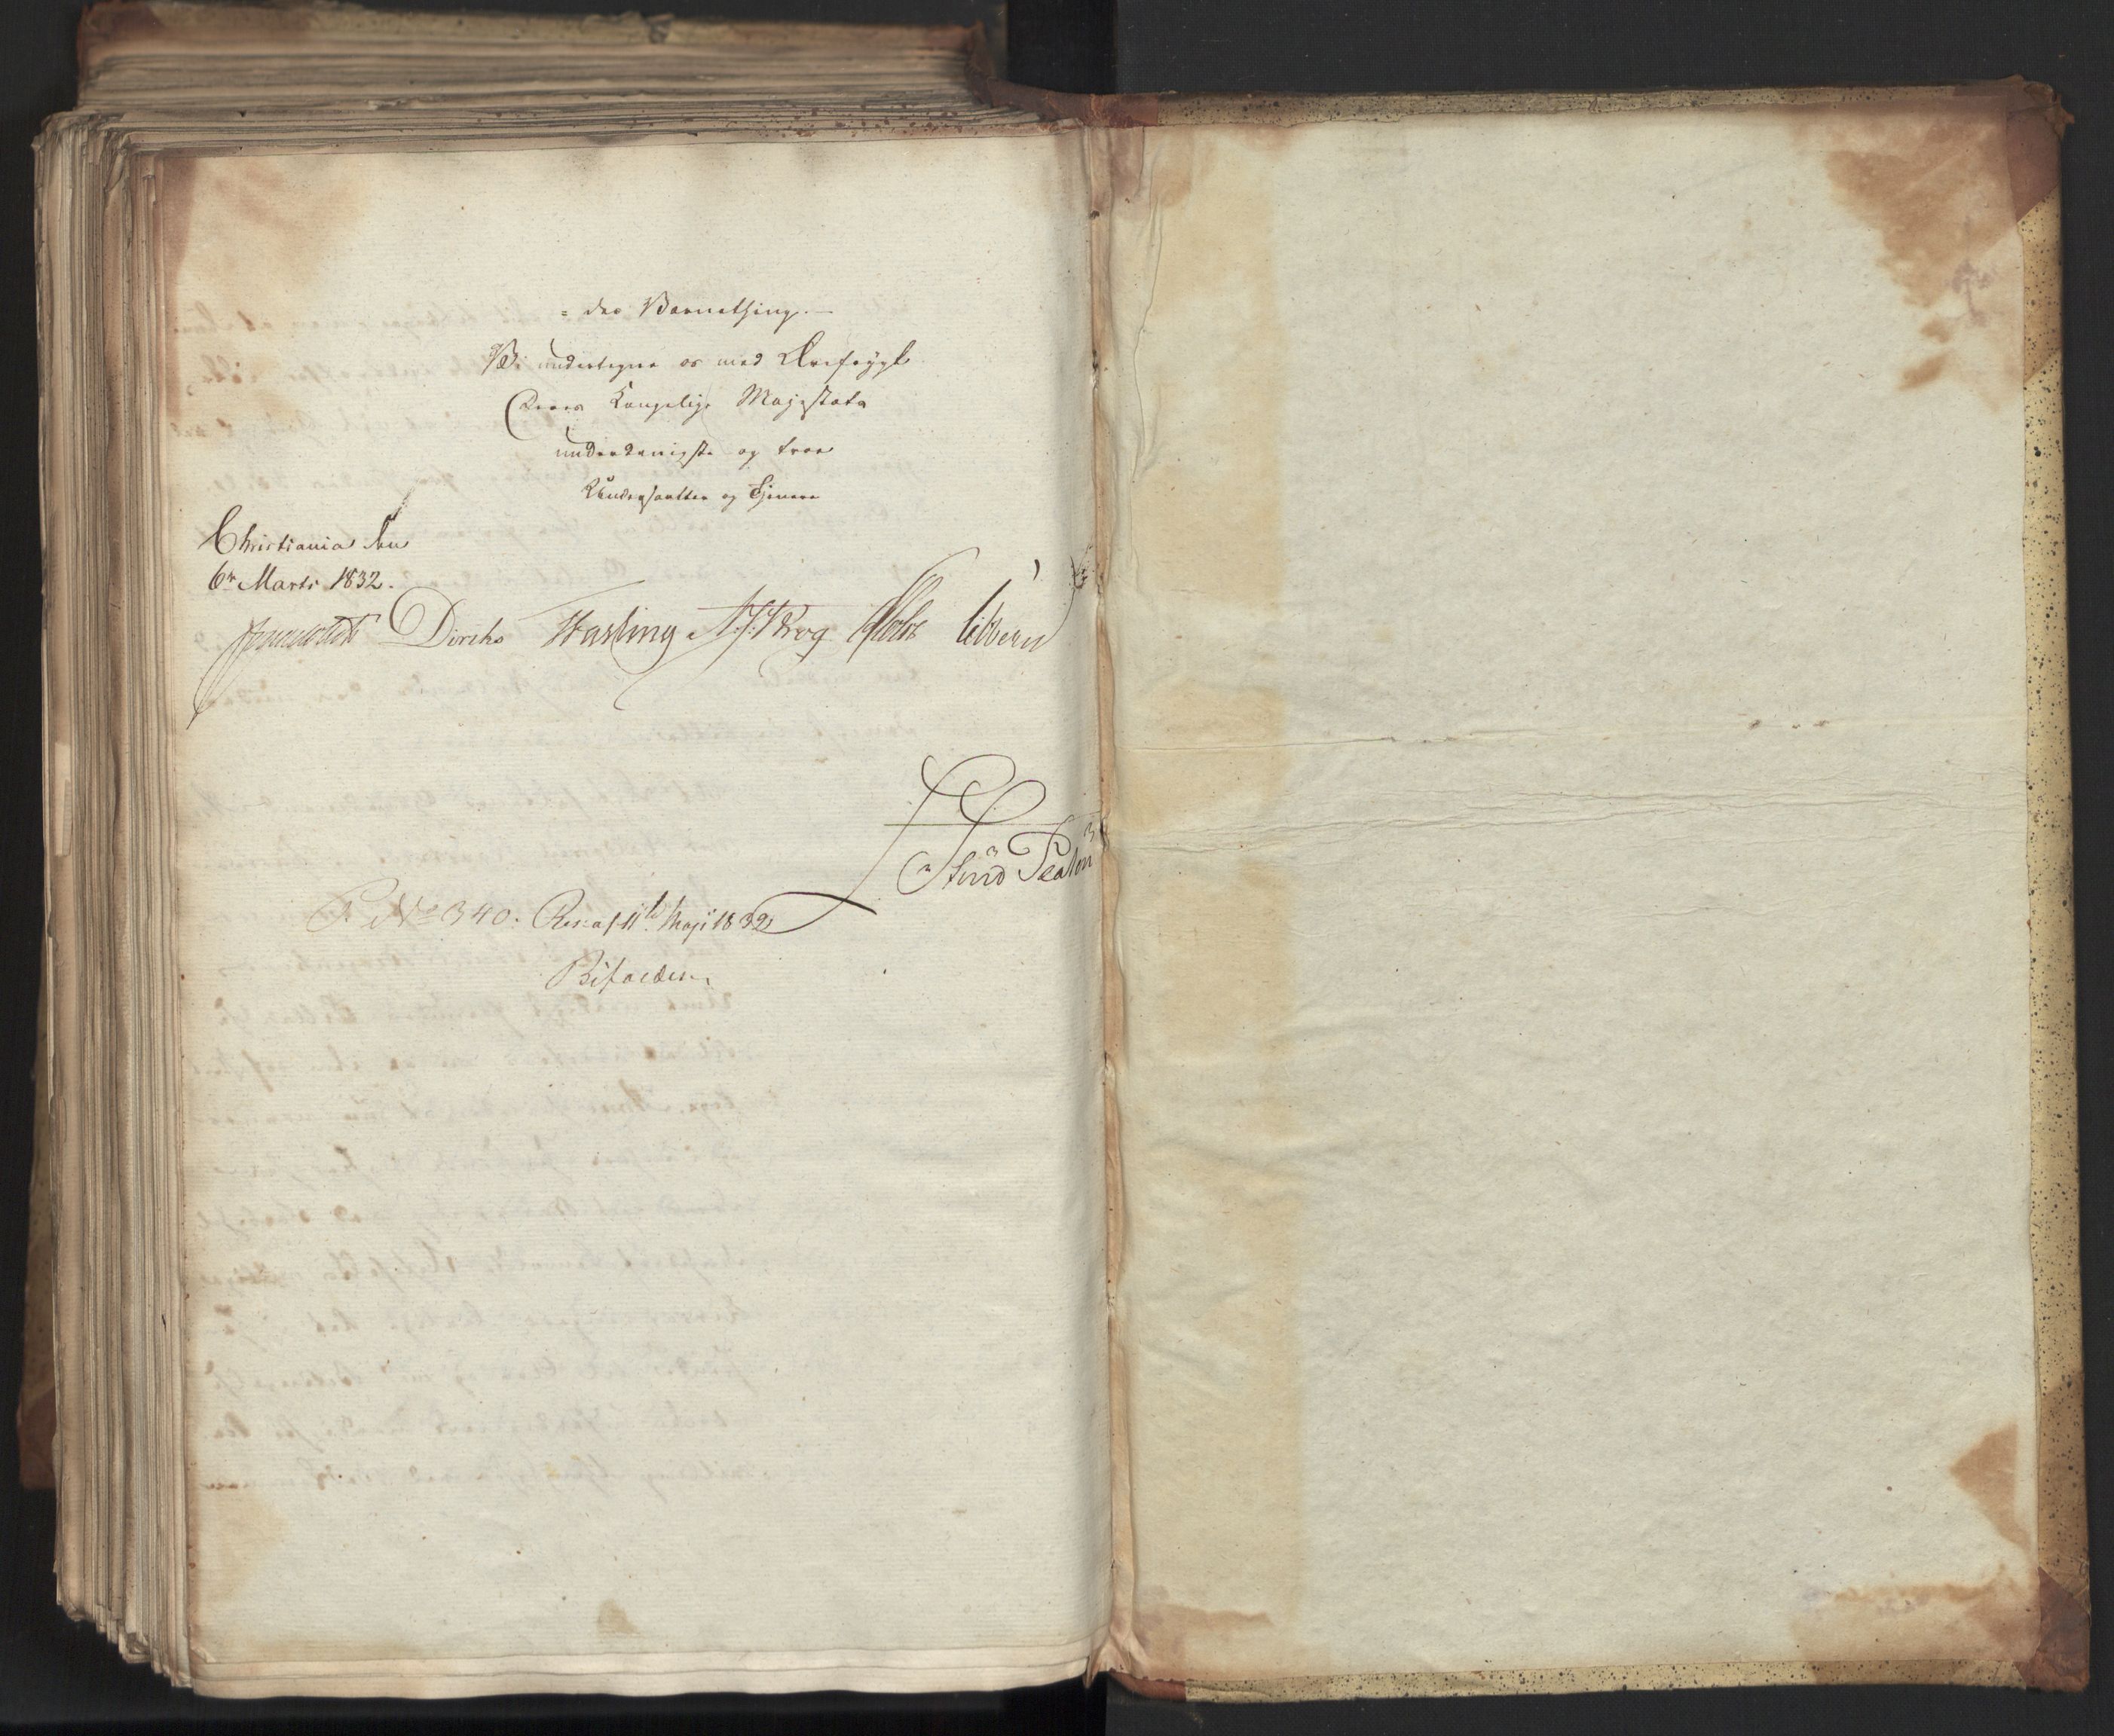 = des Varnething. —
Vi undertegne os med Ærefrygt
Deres Kongelige Majestæts
underdanigste og troe
Undersaatter og Tjenere
Christiania den
6te Marts 1832.
Diriks Fasting Krog Holst Sibbern
P. No 340. Res: af 11te Maji 1832
Bifaldes.